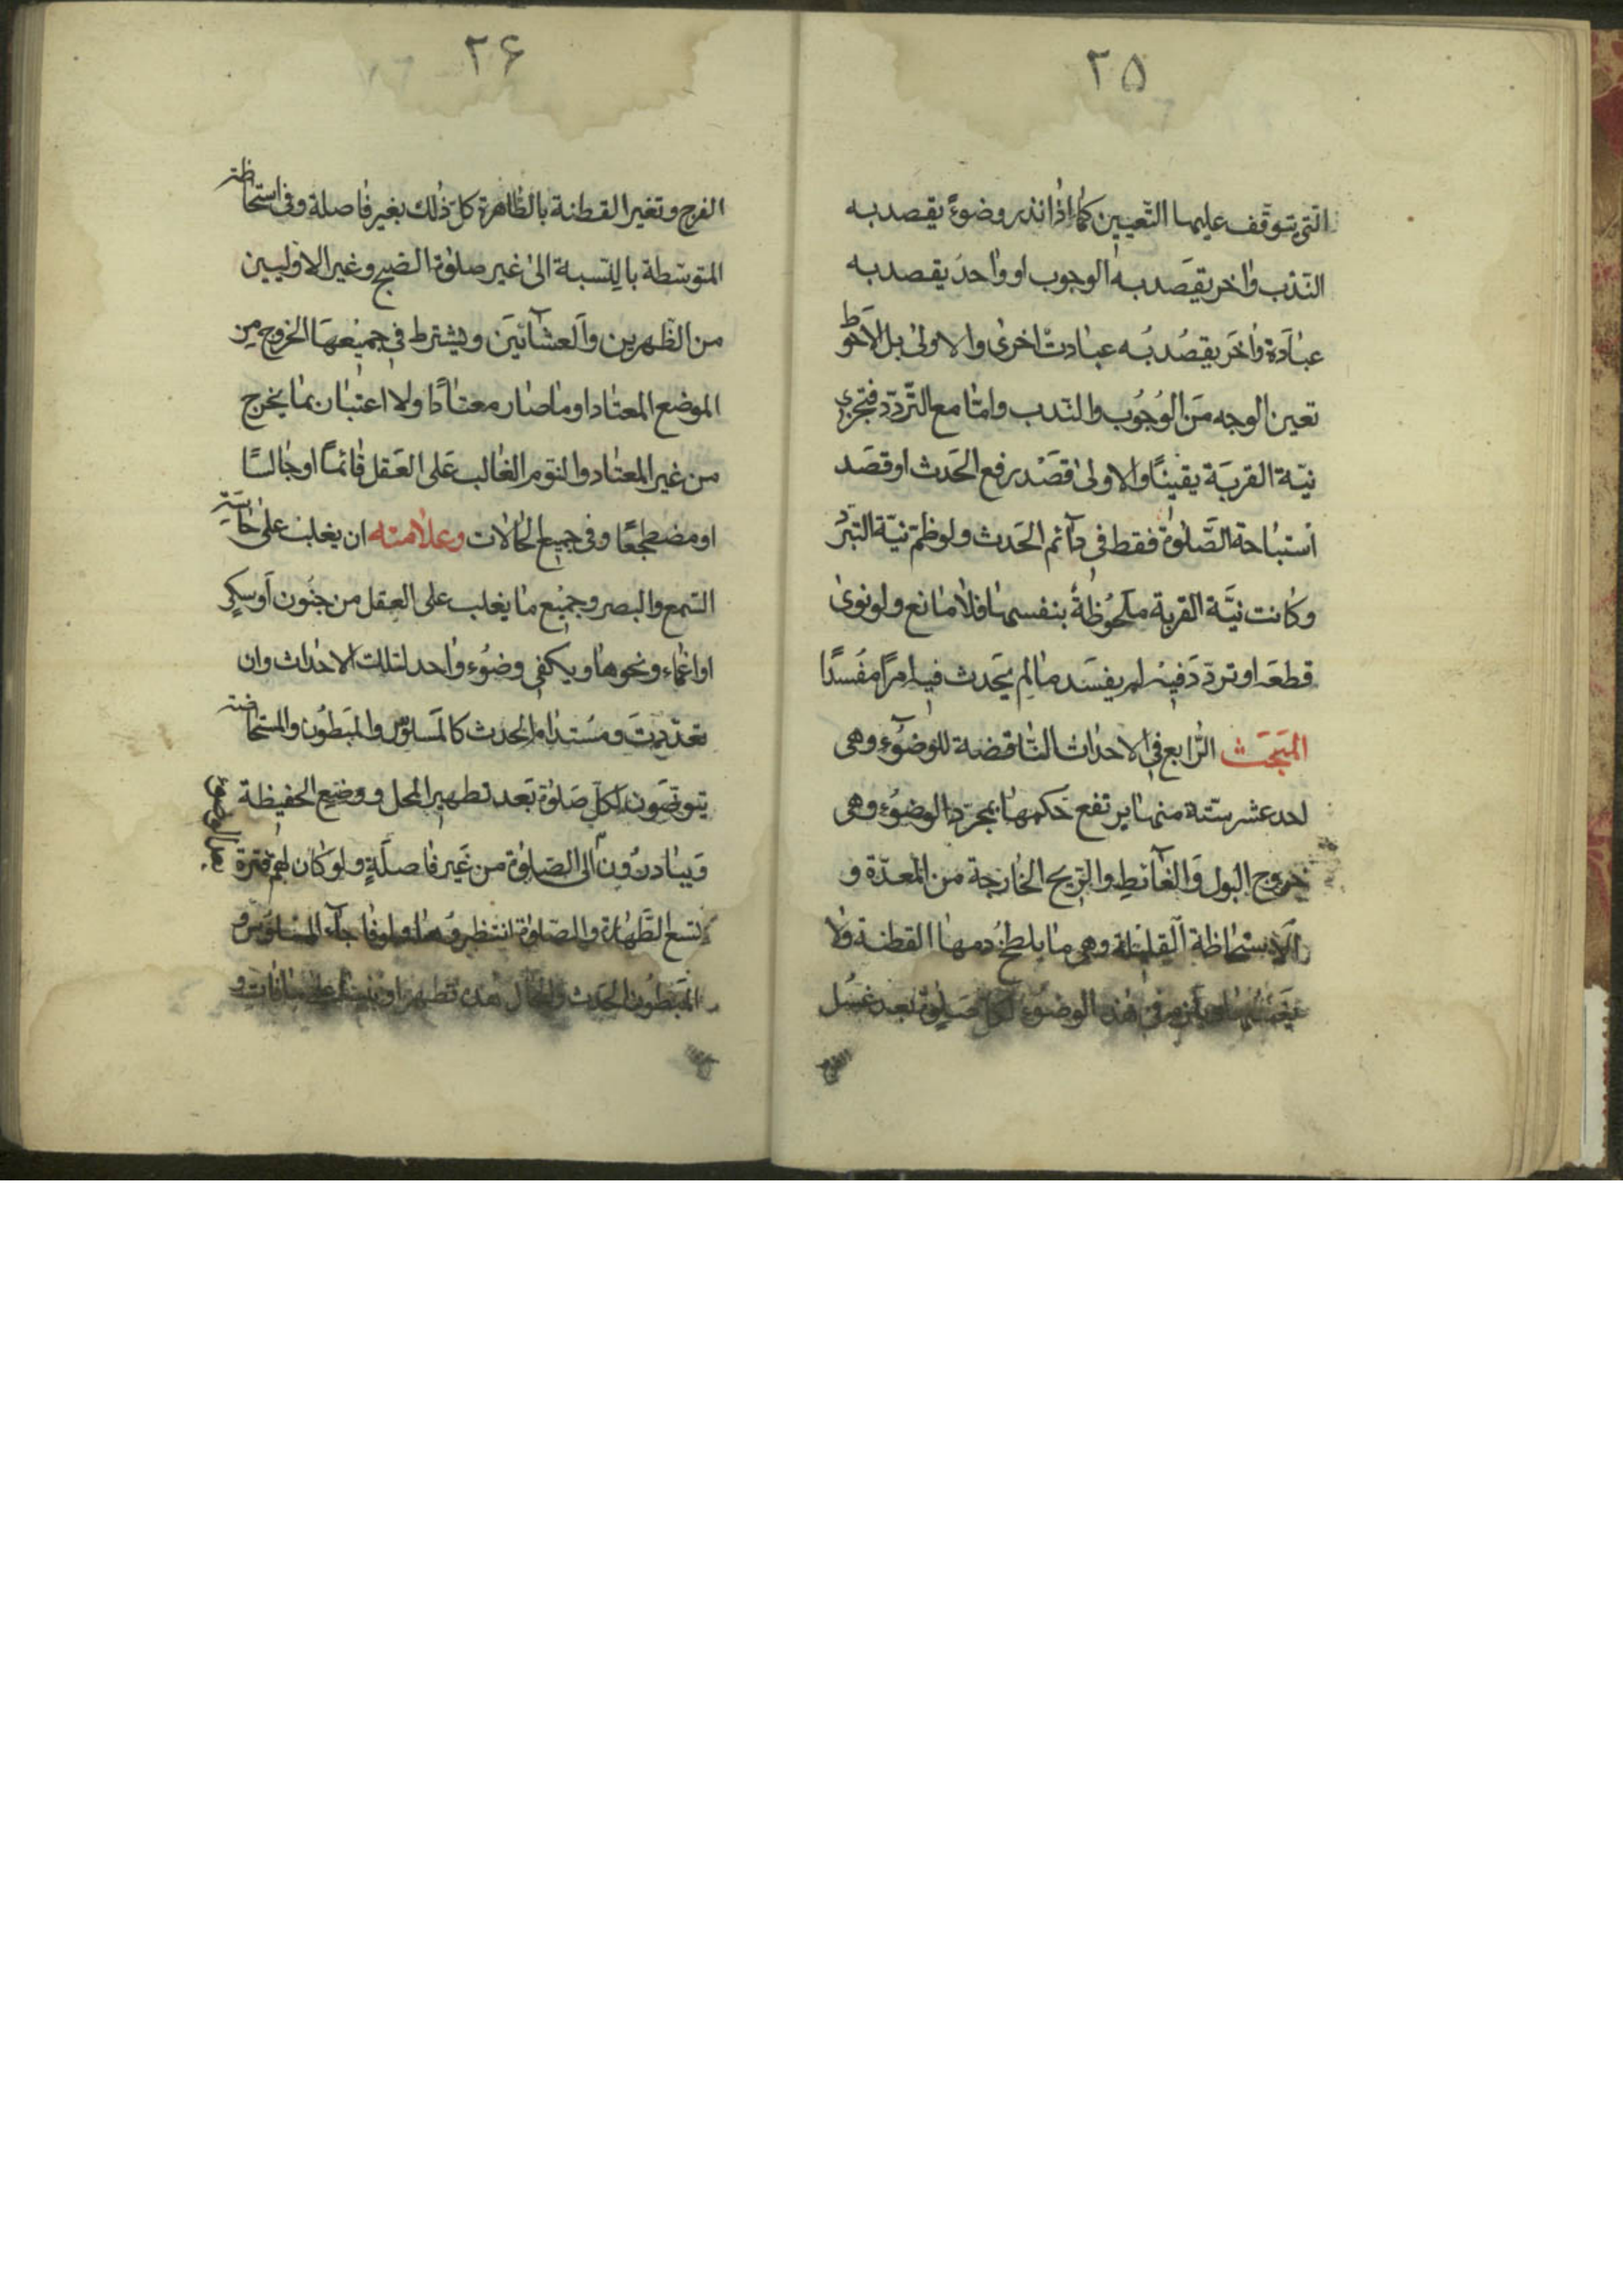 ۲۵
الّتي يتوقّف عليها التّعيين كما اذا نذر وضوءً يقصد به
النّدب واخر يقصد به الوجوب او واحد يقصد به
عبادة واخر يقصد به عبادت اخرى والاولى بل الاحوط
تعين الوجه من الوجوب والنّدب وامّا مع التّردّد فتجزي
نيّة القربة يقينًا والاولى قصد رفع الحدث او قصد
استباحة الصّلوة فقط في دآئم الحدث ولو ضمّ نيّة التبرّد
وكانت نيّة القربة ملحوظة بنفسها فلا مانع ولو نوى
قطعه او تردّد فيه لم يفسد مالم يحدث فيه امرًا مفسدًا
المبحث الرّابع في الاحداث النّاقضة للوضوء وهي
احد عشر ستّة منها يرتفع حكمها بمجرّد الوضوء وهي
خروج البول والغآئط والرّيح الخارجة من المعدة و
الاستحاظة القليلة وهي ما يلطخ دمها القطنة ولا
في هذه الوضوء لكلّ صلوة بعد غسل
۲۶
الفرج وتغير القطنة بالطّاهرة كلّ ذلك بغير فاصلة وفي استحاظة
المتوسّطة بالنّسبة الى غير صلوة الصّبح وغير الاوليين
من الظّهرين والعشآئين ويشترط في جميعها الخروج من
الموضع المعتاد او ما صار معتادًا ولا اعتبار بما يخرج
من غير المعتاد والنّوم الغالب على العقل قائمًا او جالسًا
او مضطجعًا وفي جميع الحالات وعلامته ان يغلب على حاسّة
السّمع والبصر وجميع ما يغلب على العقل من جنون او سكر
او اغماء ونحوها ويكفي وضوء واحد لتلك الاحداث وان
تعدّدت ومستدام الحدث كالمسلوس والمبطون والمستحاضة
يتوضّون لكلّ صلوة بعد تطهير المحل ووضع الحفيظة
ويبادرون الى الصّلوة من غير فاصلةٍ ولو كان لهم فترة
تسع الطّهارة والصّلوة انتظروها ولو فاجآء المسلوس و
المبطون الحدث والحال هذه تطهر